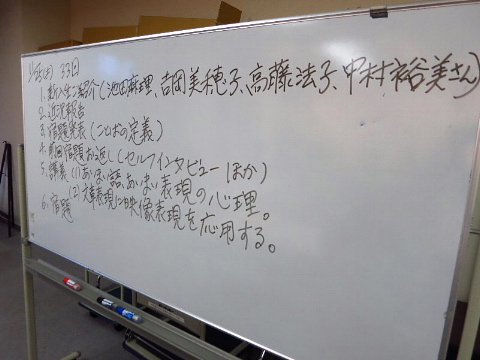 33回
1. 新入生ご紹介(池田麻理、吉岡美穂子、高藤法子、中村裕美さん)
2. 近況報告
3. 宿題発表(ことばの定義)
4. 前回宿題お返し(セルフインタビューほか)
5. 講義(1)あいまい語、あいまい表現の心理。
(2)文章表現に映像表現を応用する。
6. 宿題